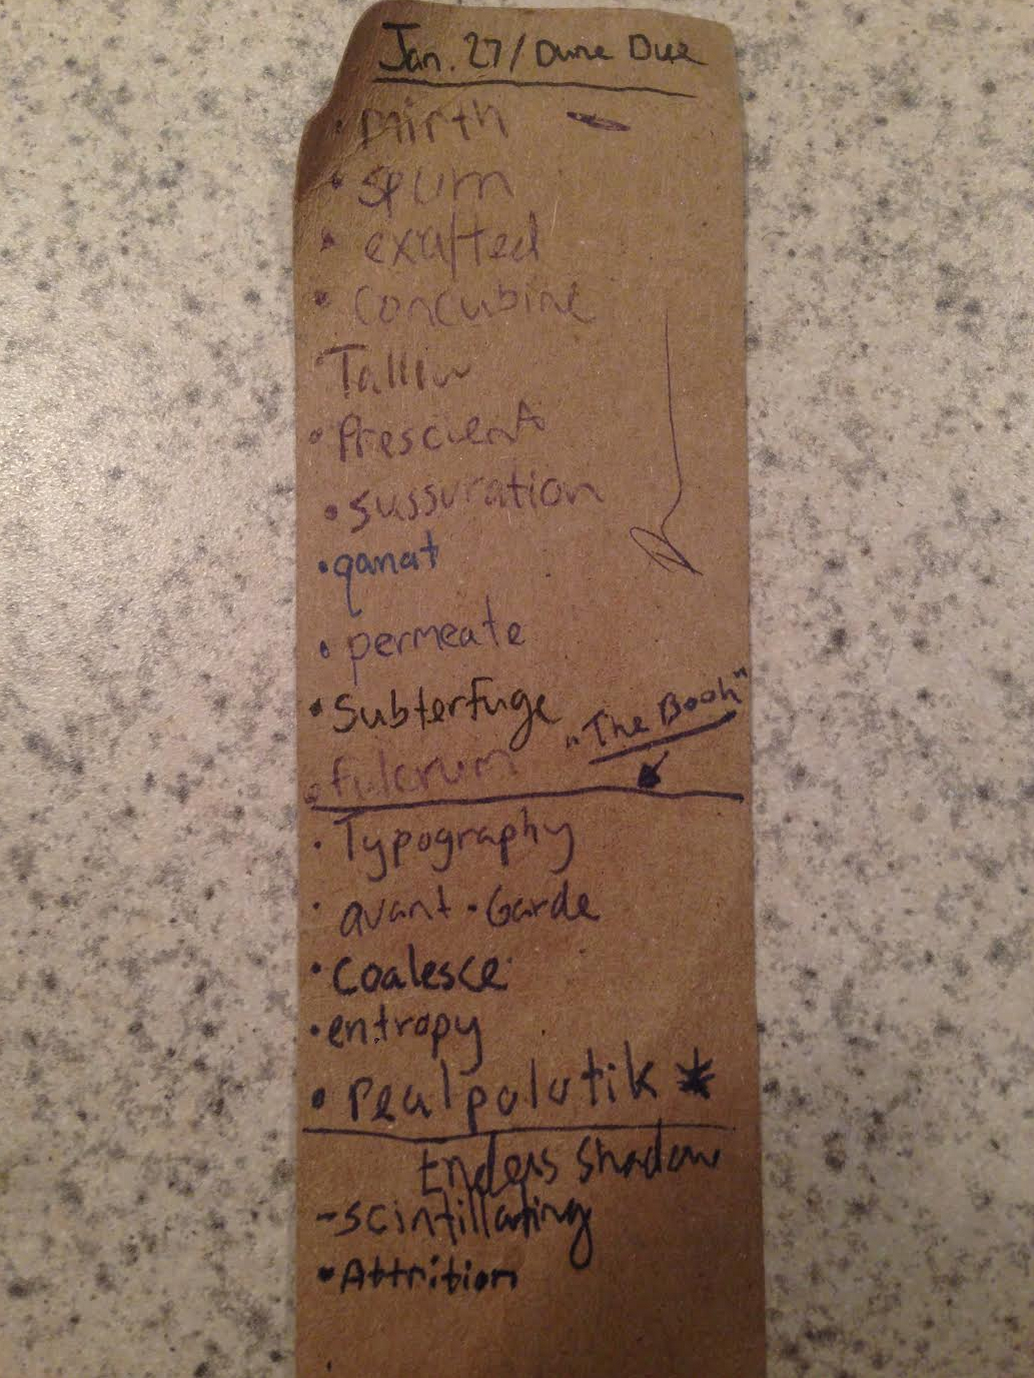 Jan. 27/Dune Due
• mirth
• spurn
• exalted
• concubine
• Prescient
• sussuration
• qanat
• permeate
• Subterfuge
"The Book"
• fulcrum
• Typography
• avant-Garde
• Coalesce
• entropy
• realpolotik *
Endless Shadow
- scintillating
• Attrition